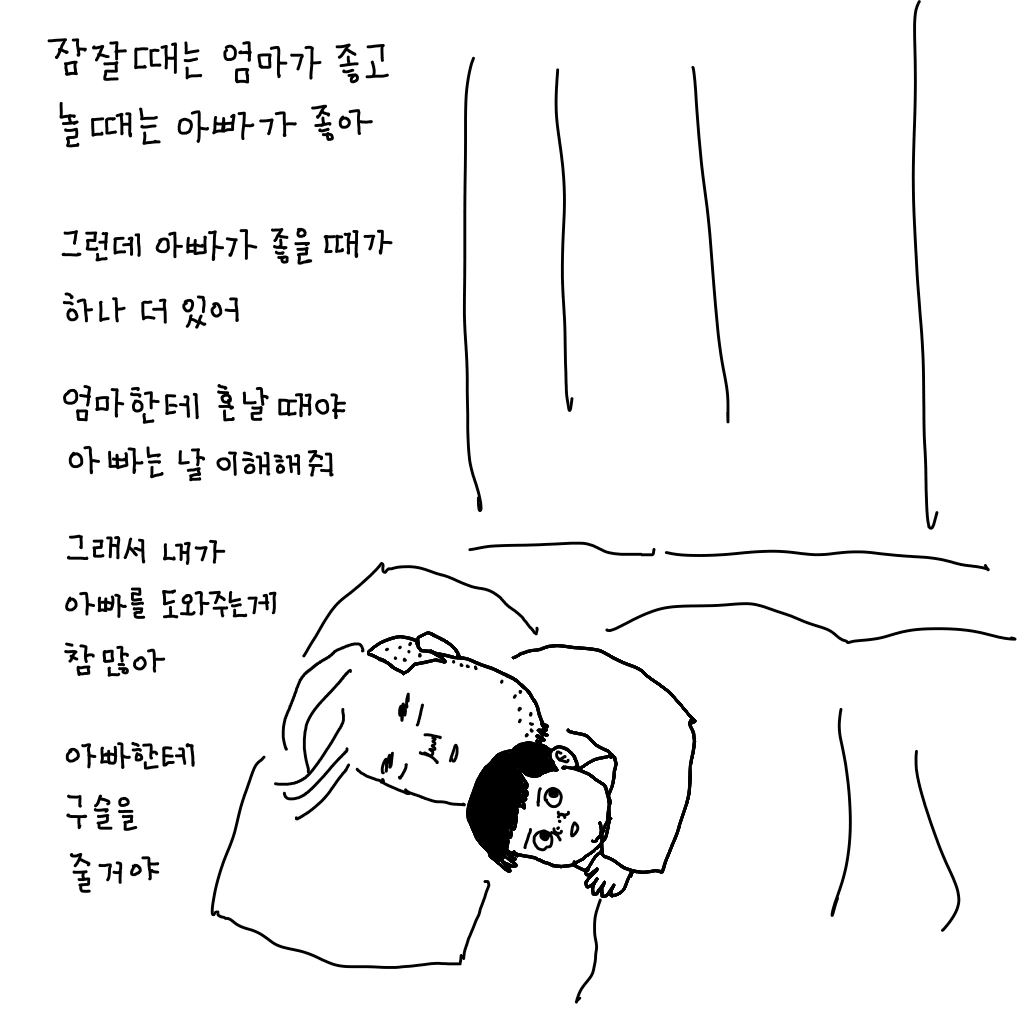 잠잘때는 엄마가 좋고
놀때는 아빠가 좋아
그런데 아빠가 좋을 때가
하나 더 있어
엄마한테 혼날 때야
아빠는 날 이해해줘
그래서 내가
아빠를 도와주는게
참 많아
아빠한테
구슬을
줄거야